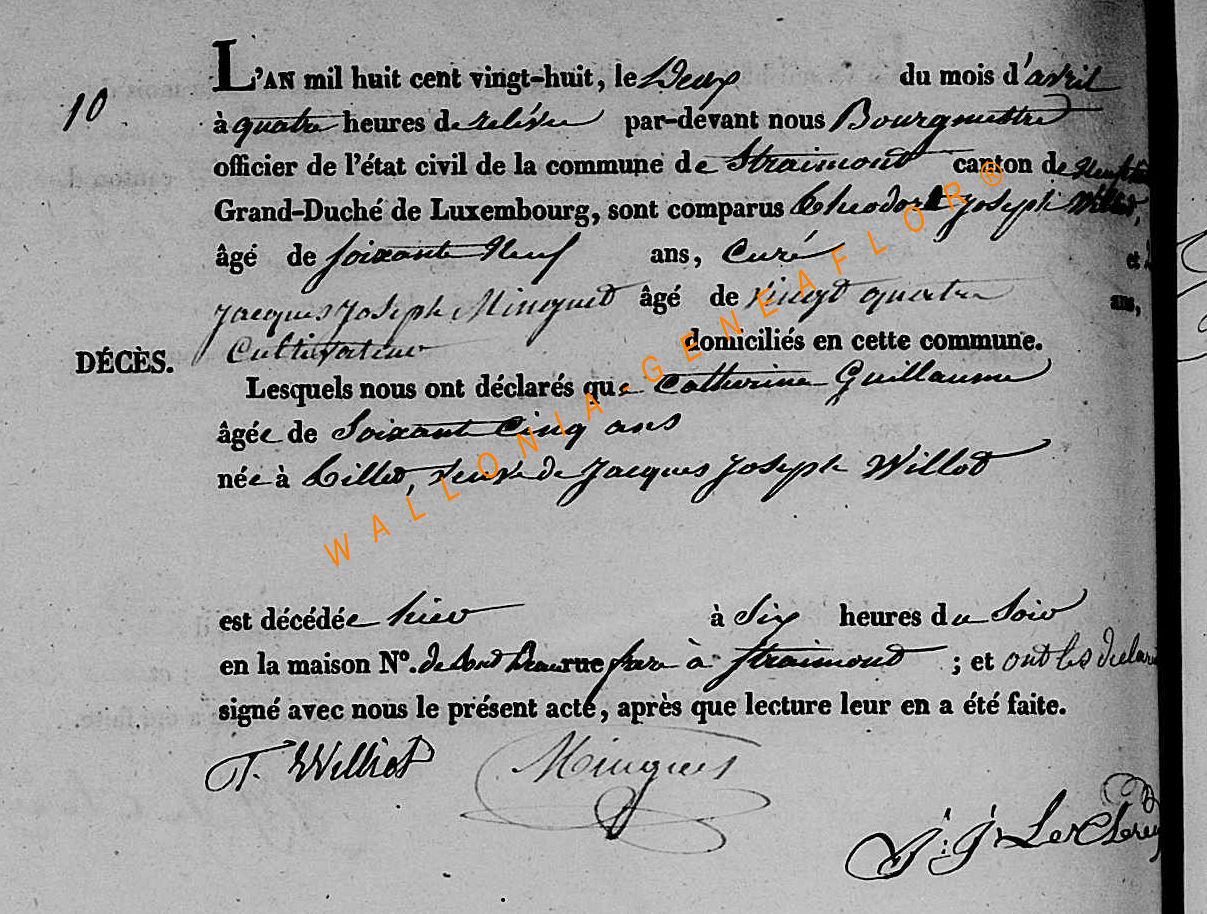 L'AN mil huit cent vingt-huit, le Deux du mois d'avril
10
à quatre heures de relévée par-devant nous Bourgmestre
officier de l'état civil de la commune de Straimont canton de
Grand-Duché de Luxembourg, sont comparus Théodore Joseph Willot,
âgé de soixante Neuf ans, Curé et
Jacques Joseph Minguet âgé de vingt quatre ans,
Cultivateur domiciliés en cette commune.
DÉCÈS.
Lesquels nous ont déclarés que Catherine Guillaume
âgée de Soixante Cinq ans
née à Tillet, veuve de Jacques Joseph Willot
est décédée hier à Six heures du Soir
en la maison N°. de son rue à Straimont ; et ont les
signé avec nous le présent acte, après que lecture leur en a été faite.
T. Williot Minguet
J: J: LeClerc
WALLONIA-GENEAFLOR®